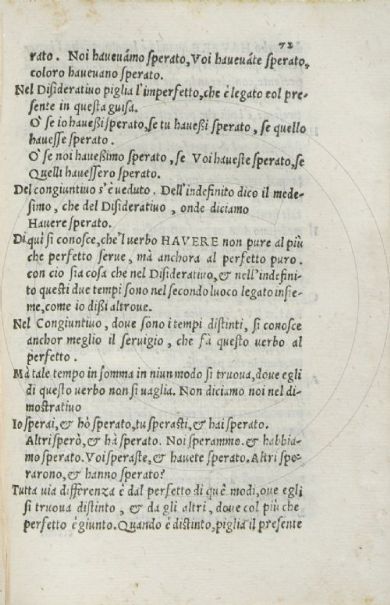 72
rato. Noi havevámo sperato, Voi haveváte sperato,
coloro havevano sperato.
Nel Disiderativo piglia l'imperfetto, che è legato col pre-
sente in questa guisa.
O' se io havessi sperato, se tu havessi sperato, se quello
havesse sperato.
O' se noi havessimo sperato, se Voi haveste sperato, se
Quelli havessero sperato.
Del congiuntivo s'è veduto. Dell'indefinito dico il mede-
simo, che del Disiderativo, onde diciamo
Havere sperato.
Di qui si conosce, che'l verbo HAVERE non pure al più
che perfetto serve, mà anchora al perfetto puro.
con cio sia cosa che nel Disiderativo, & nell'indefini-
to questi due tempi sono nel secondo luoco legato insie-
me, come io dissi altrove.
Nel Congiuntivo, dove sono i tempi distinti, si conosce
anchor meglio il servigio, che fà questo verbo al
perfetto.
Mà tale tempo in somma in niun modo si truova, dove egli
di questo verbo non si vaglia. Non diciamo noi nel di-
mostrativo
Io sperai, & hò sperato, tu sperasti, & hai sperato.
Altri sperò, & hà sperato. Noi sperammo, & habbia-
mo sperato. Voi speraste, & havete sperato. Altri spe-
rarono, & hanno sperato?
Tutta via differenza è dal perfetto di què modi, ove egli
si truova distinto, & da gli altri, dove col più che
perfetto è giunto. Quando è distinto, piglia il presente